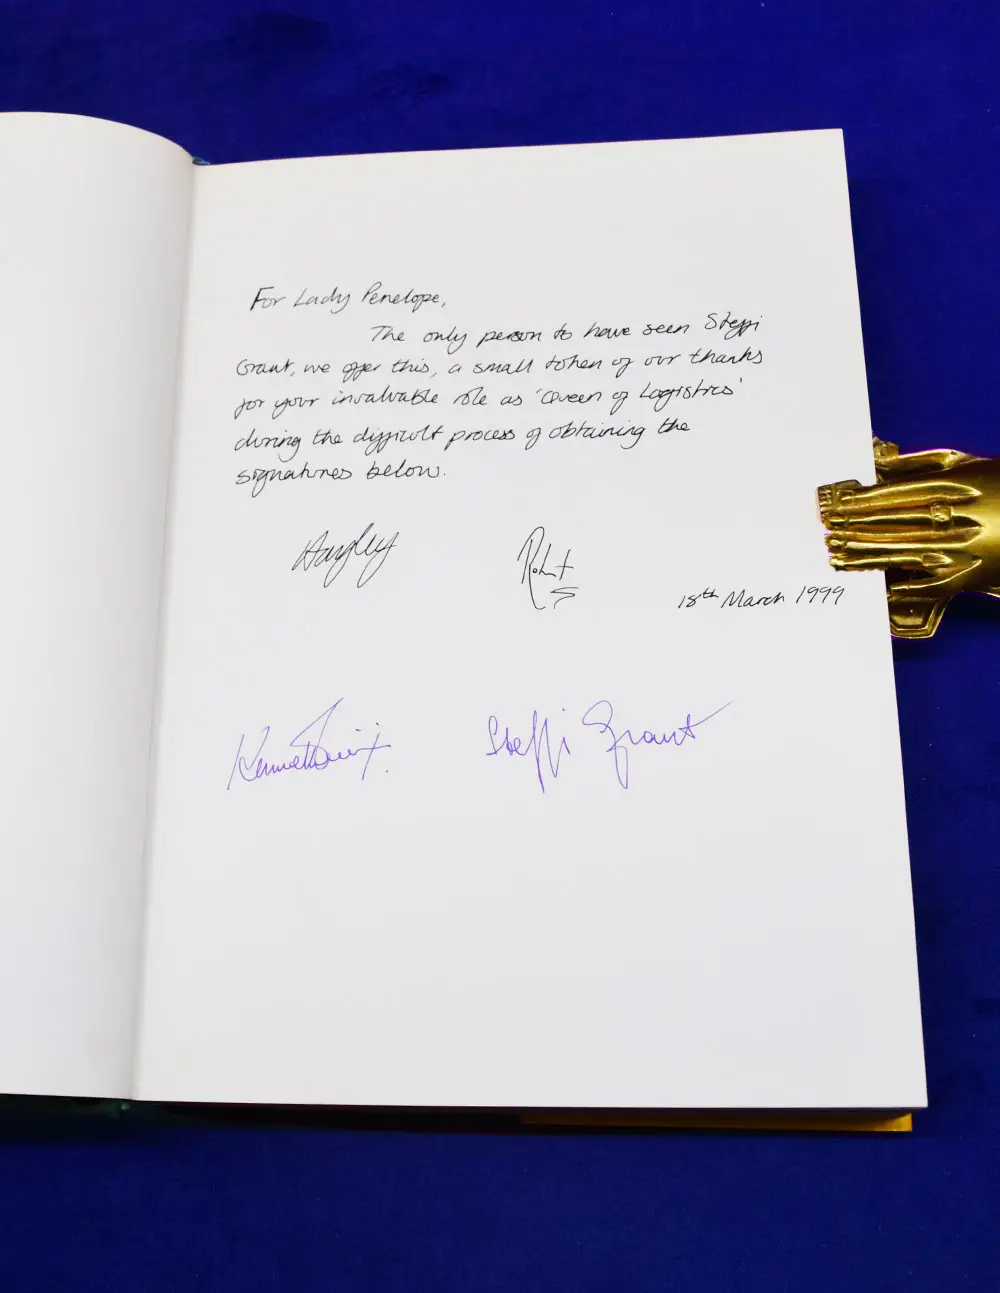 For Lady Penelope,
The only person to have seen Steffi
Grant, we offer this, a small token of our thanks
for your invaluable role as 'Queen of Logistics'
during the difficult process of obtaining the
signatures below.
Hayley Robert
18th March 1999
Kenneth Steffi Grant